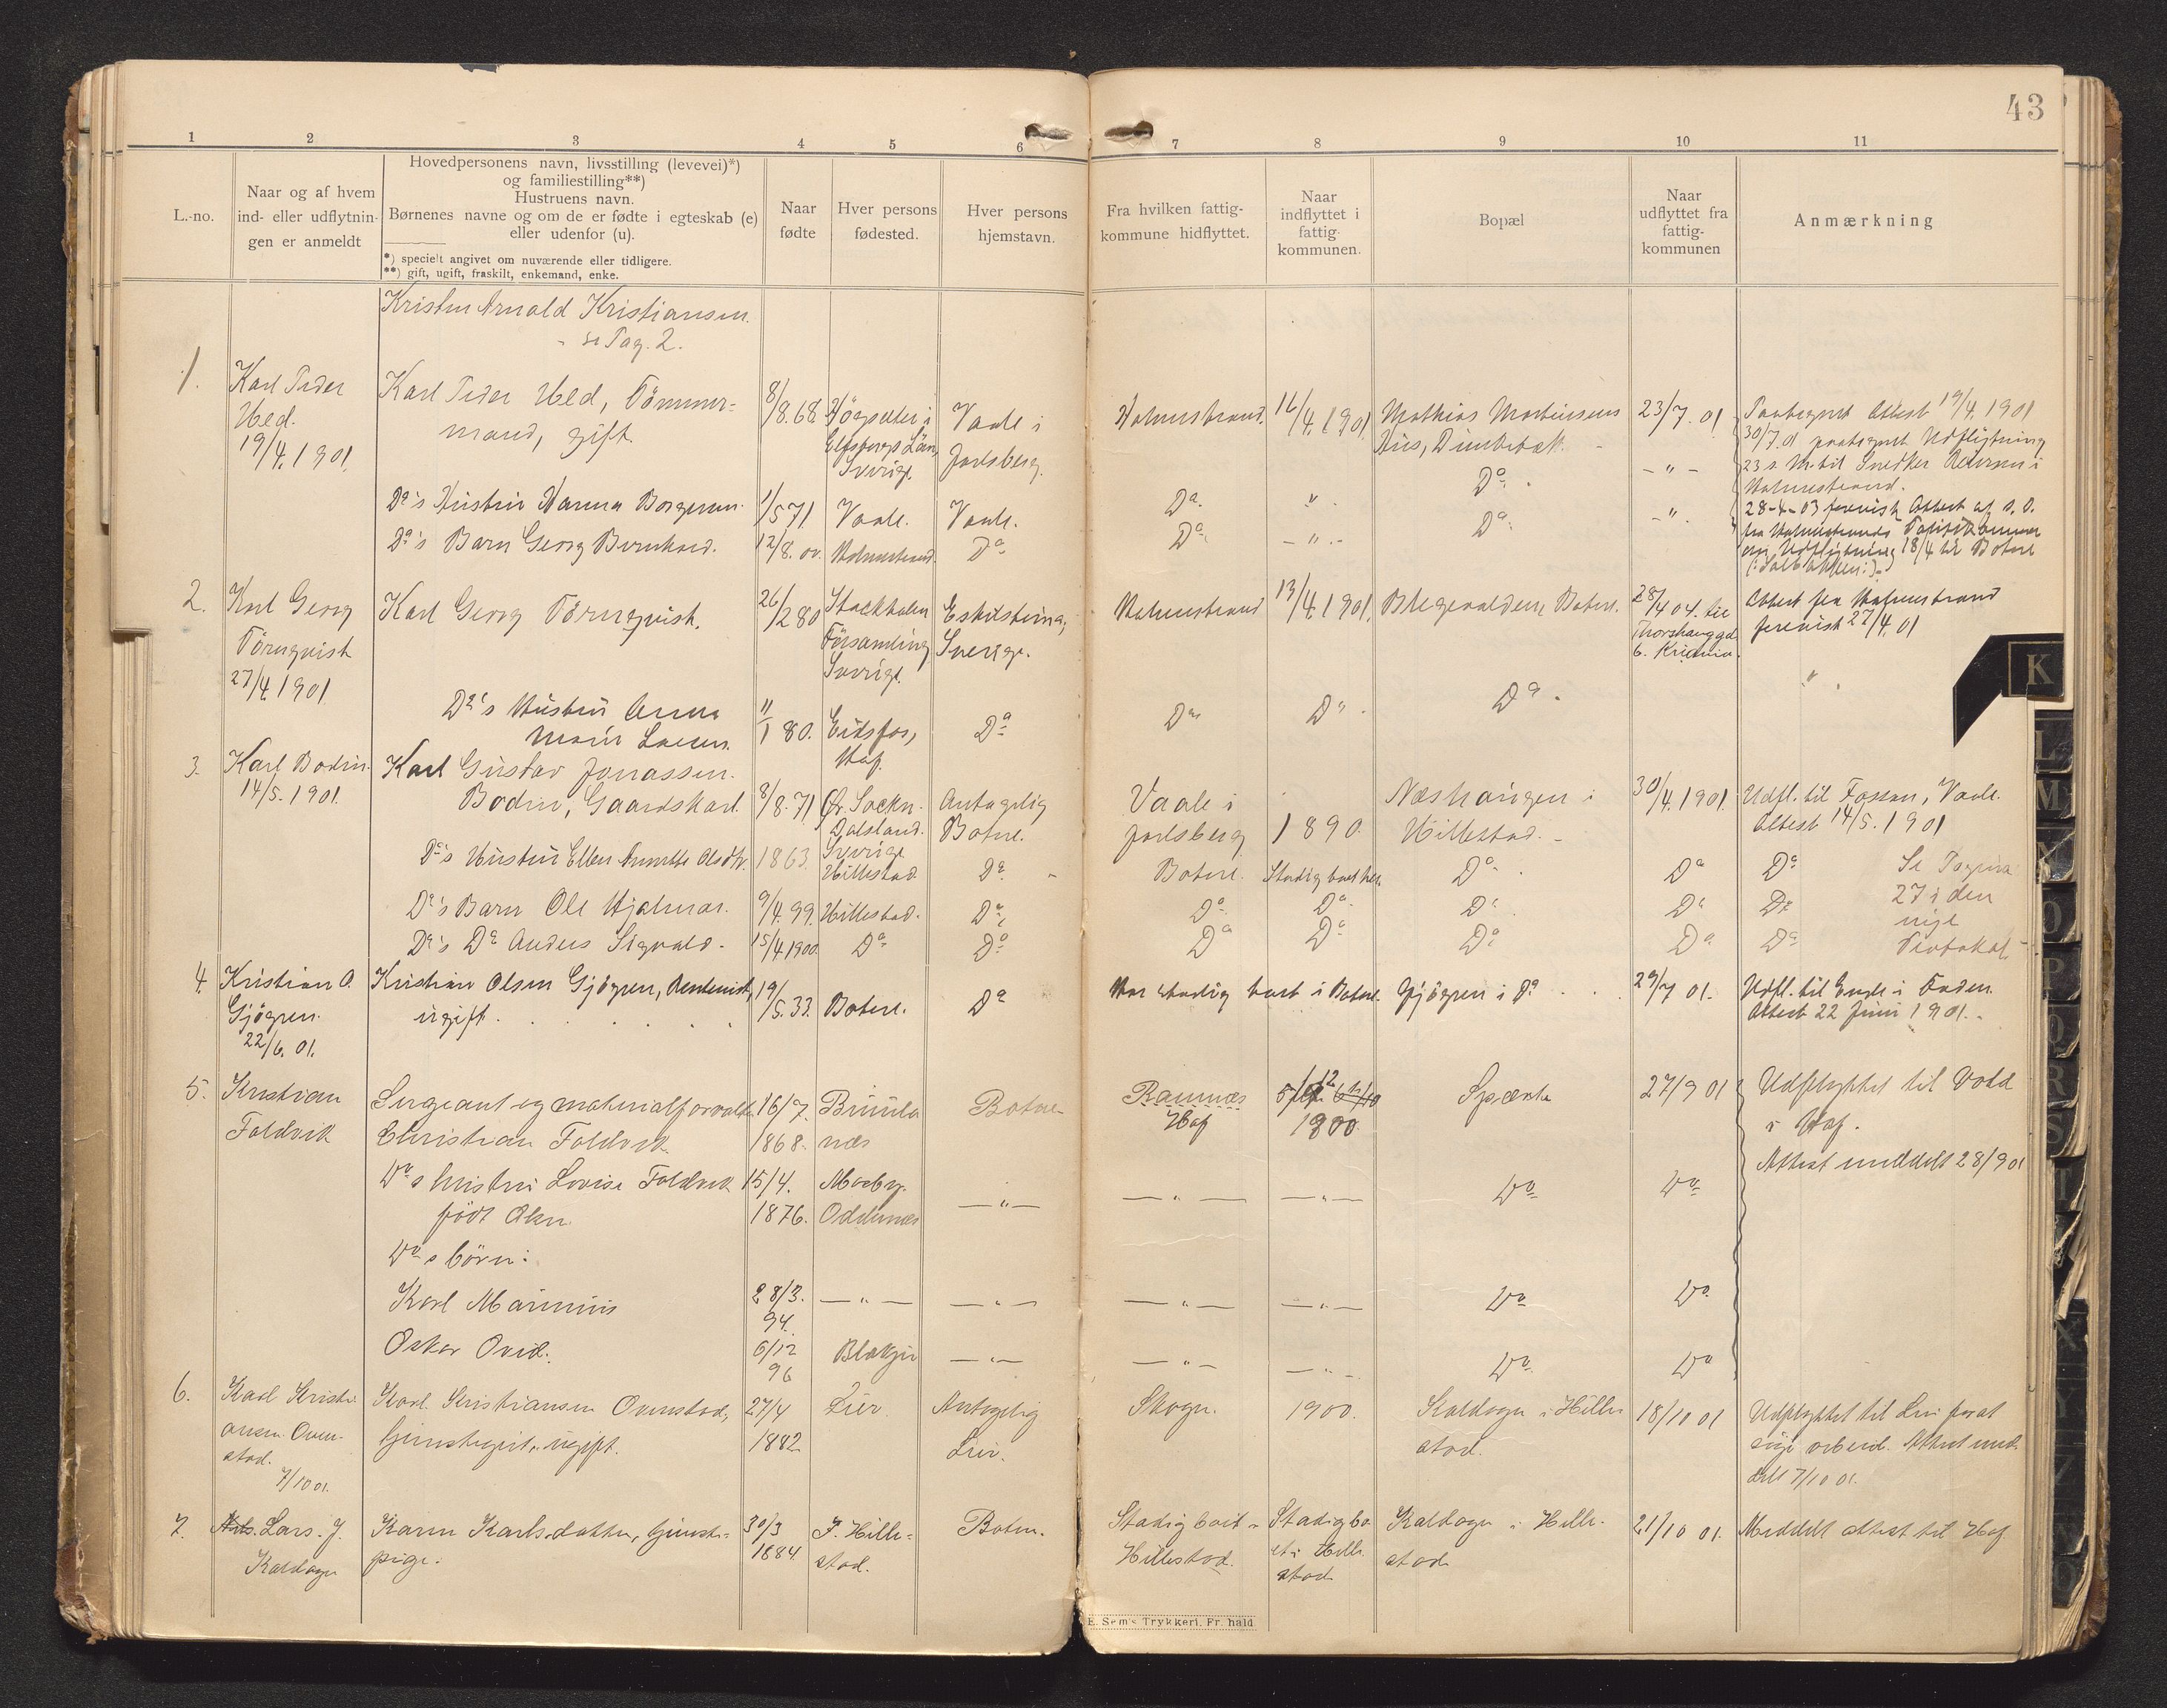 43
1 2 3 4 5 6 7 8 9 10 11
L.-no.
Naar og af hvem
ind- eller udflytnin-
gen er anmeldt
Hovedpersonens navn, livsstilling (levevei)*)
og familiestilling**)
Hustruens navn.
Børnenes navne og om de er fødte i egteskab (e)
eller udenfor (u).
*) specielt angivet om nuværende eller tidligere.
**) gift, ugift, fraskilt, enkemand, enke.
Naar
fødte
Hver persons
fødested.
Hver persons
hjemstavn.
Fra hvilken fattig-
kommune hidflyttet.
Naar
indflyttet i
fattig-
kommunen.
Bopæl
Naar
udflyttet fra
fattig-
kommunen
Anmærkning
Kristen Arnold Kristiansen.
- se Pag. 2.
1.
Karl Peder
Ued.
19/4. 1901.
Karl Peder Ued, Tömmer-
mand, gift.
8/8. 68.
Högsäter i
Elfsborgs Län,
Sverige.
Vaale i
Jarlsberg.
Holmestrand.
16/4. 1901.
Mathias Martinsens
Hus, Dunkebæk.
23/7. 01
Paategnet Attest 19/4. 1901
30/7. 01 paategnet Udflytning
23 s. M. til Snedker
Holmestrand.
Do's Hustru Hanna Borgersen.
1/5 71
Vaale.
Vaale.
Do.
" .
Do.
- " -
28-4-03 forevist Attest af s. D.
fra Holmestrands Politikammer
om Udflytning 18/4 til Botne
Do's Barn Georg Bernhard.
12/8. 00.
Holmestrand.
Do
Do.
- " -
Do.
- " .
2.
Karl Georg
Törnqvist
27/4. 1901
Karl Georg Törnqvist.
26/2 80
Stockholm
Församling
Sverige.
Eskilstuna,
Sverige.
Holmestrand
13/4. 1901.
Bregevolden, Botne.
28/4 04. til
Thorshauggd.
6. Kr.ania.
Attest fra Holmestrand
forevist 27/4. 01
Do's Hustru Anna
Marie Larsen.
11/1 80.
Eidsfos,
Hof.
Do
Do
Do .
Do .
" .
3.
Karl Bodin.
14/5. 1901.
Karl Gustav Jonassen.
Bodin, Gaardskarl.
8/8. 71
Sockn.
Dalsland.
Sverige
Antagelig
Botne.
Vaale i
Jarlsberg
1890.
Næshaugen i
Hillestad.
30/4. 1901.
Udfl. til Fossan, Vaale.
Attest 14/5. 1901
Do's Hustru Ellen Annette Olsdtr.
1863.
Hillestad
Do.
Botne.
Stadig boet her.
Do.
Do
Do
Se Pagina
27 i den
nye
Protokol.
Do's Barn Ole Hjalmar.
9/4. 99.
Hillestad.
Do.
Do
Do.
Do.
Do
Do
Do's Do Anders Sigvald.
15/4 1900.
Do
Do.
Do
Do
Do
Do
Do
4.
Kristian O.
Gjögren.
22/6. 01.
Kristian Olsen Gjögren, Rentenist,
ugift.
19/5. 33.
Botne.
Do
Har stadig boet i Botne.
Gjögren i Do
29/7 01.
Udfl. til Engle i Fonden.
Attest 22 Juni 1901.
5.
Kristian
Foldvik
Sergeant og materialforvalter
Christian Foldvik
16/7.
1868.
Brunla
næs
Botne
Ramnæs
Hof
1900
Spærsta
27/9 01
Udflyttet til Vold
i Hof.
Attest meddelt 28/9 01
Do s hustru Lovise Foldvik
født Aker.
15/4.
1876.
Mosby.
Oddernes
— " —
— " —
— " —
Do
Do
Do s börn:
Karl Marinius
28/3.
94.
— " —
— " —
— " —
— " —
Do
Do
Oskar Ovid.
6/12
96
Blakjer
— " —
— " —
— " —
Do
Do
6.
Karl Kristi-
ansen Oven-
stad.
7/10 01.
Karl Kristiansen Ovenstad,
tjenstegut, ugift.
27/4
1882
Lier
Antagelig
Lier.
Skoger.
1900.
Kaldager i Hille-
stad.
18/10 01
Udflyttet til Lier for at
søge arbeid. Attest med-
delt 7/10 01.
7.
Lars. J.
Kaldager
Karen Karlsdatter, tjeneste-
pige.
30/3
1884.
I. Hille-
stad.
Botne.
Stadig boet i
Hillestad.
Stadig bo
et i Hille
stad
Kaldager i Hille-
stad
21/10 01.
Meddelt attest til Hof
E. Sem's Trykkeri, Fr.hald
K
L
M
N
O
P
Q
R
S
T
X
Y
Z